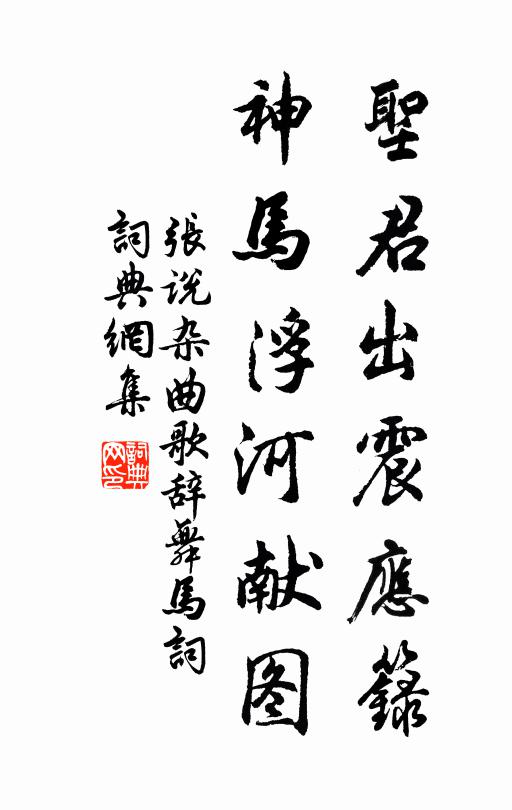 聖君出震應籙
神馬浮河献图
張说杂曲歌辞舞馬詞
詞典網集
詞典网印